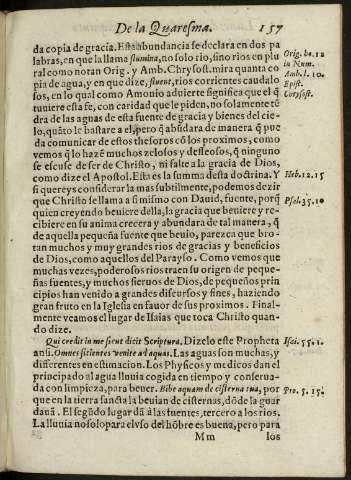 De la Quaresma. 157
da copia de gracia. Esta abundancia se declara en dos pa
labras, en que la llama flumina, no solo rio, sino rios en plu
ral como notan Orig. y Amb. Chrysost. mira quanta co
pia de agua, y en que dize, fluent, rios corrientes caudalo
sos, en lo qual como Amonio aduierte significa que el q̃
tuuiere esta fe, con caridad que le piden, no solamente tẽ
dra de las aguas de esta fuente de gracia y bienes del cie-
lo, quãto le bastare a el, pero q̃ abũdara de manera q̃ pue
da comunicar de estos thesoros cõ los proximos, como
vemos q̃ lo hazẽ muchos zelosos y desseosos, q̃ ninguno
se escuse de ser de Christo, ni falte a la gracia de Dios,
como dize el Apostol. Esta es la summa desta doctrina. Y
si quereys considerar la mas subtilmente, podemos dezir
que Christo se llama a si mismo con Dauid, fuente, porq̃
quien creyendo beuiere della, la gracia que beniere y re-
cibiere en su anima crecera y abundara de tal manera, q̃
de aquella pequeña fuente que beuio, parezca que bro-
tan muchos y muy grandes rios de gracias y beneficios
de Dios, como aquellos del Parayso. Como vemos que
muchas vezes, poderosos rios traen su origen de peque-
ñas fuentes, y muchos sieruos de Dios, de pequeños prin
cipios han venido a grandes discursos y fines, haziendo
gran fruto en la Iglesia en fauor de sus proximos. Final-
mente veamos el lugar de Isaias que toca Christo quan-
do dize.
Qui credit in me sicut dicit Scriptura. Dizelo este Propheta
ansi. Omnes sitientes venite ad aquas. Las aguas son muchas, y
differentes en estimacion. Los Physicos y medicos dan el
principado al agua lluuia cogida en tiempo y conserua-
da con limpieza, para beuer. Bibe aquam de cisterna tua, por
que en la tierra sancta la beuian de cisternas, dõde la guar
dauã. El segũdo lugar dã a las fuentes, tercero a los rios.
La lluuia no solo para el vso del hõbre es buena, pero para
Mm los
Orig. ho. 12
in Num.
Amb. l. 10.
Epist.
Heb. 12. 15
Psal. 35. 10
Isai. 55. 1.
Pro. 5. 15.